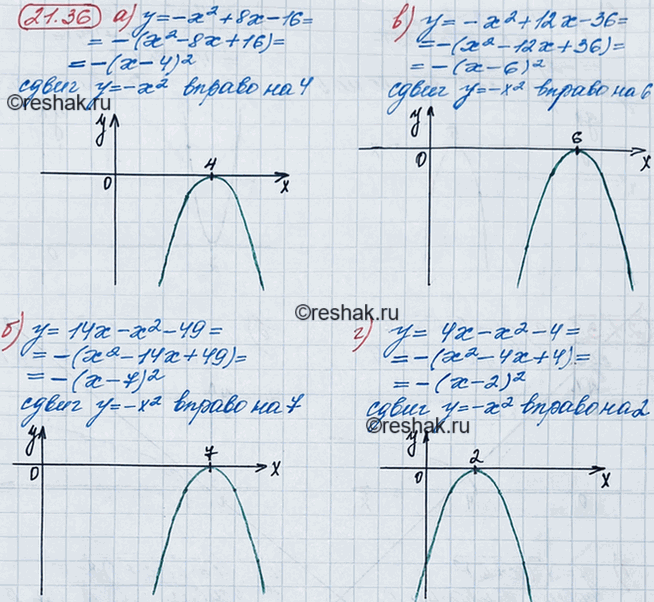 21.36 а) y=-x²+8x-16=
=-(x²-8x+16)=
=-(x-4)²
сдвиг y=-x² вправо на 4
©reshak.ru
y
4
0
x
в) y=-x²+12x-36=
=-(x²-12x+36)=
=-(x-6)²
сдвиг y=-x² вправо на 6
©reshak.ru
y
6
0
x
©reshak.ru
б) y=14x-x²-49=
=-(x²-14x+49)=
=-(x-7)²
сдвиг y=-x² вправо на 7
y
7
0
x
г) y=4x-x²-4=
=-(x²-4x+4)=
=-(x-2)²
сдвиг y=-x² вправо на 2
©reshak.ru
y
2
0
x